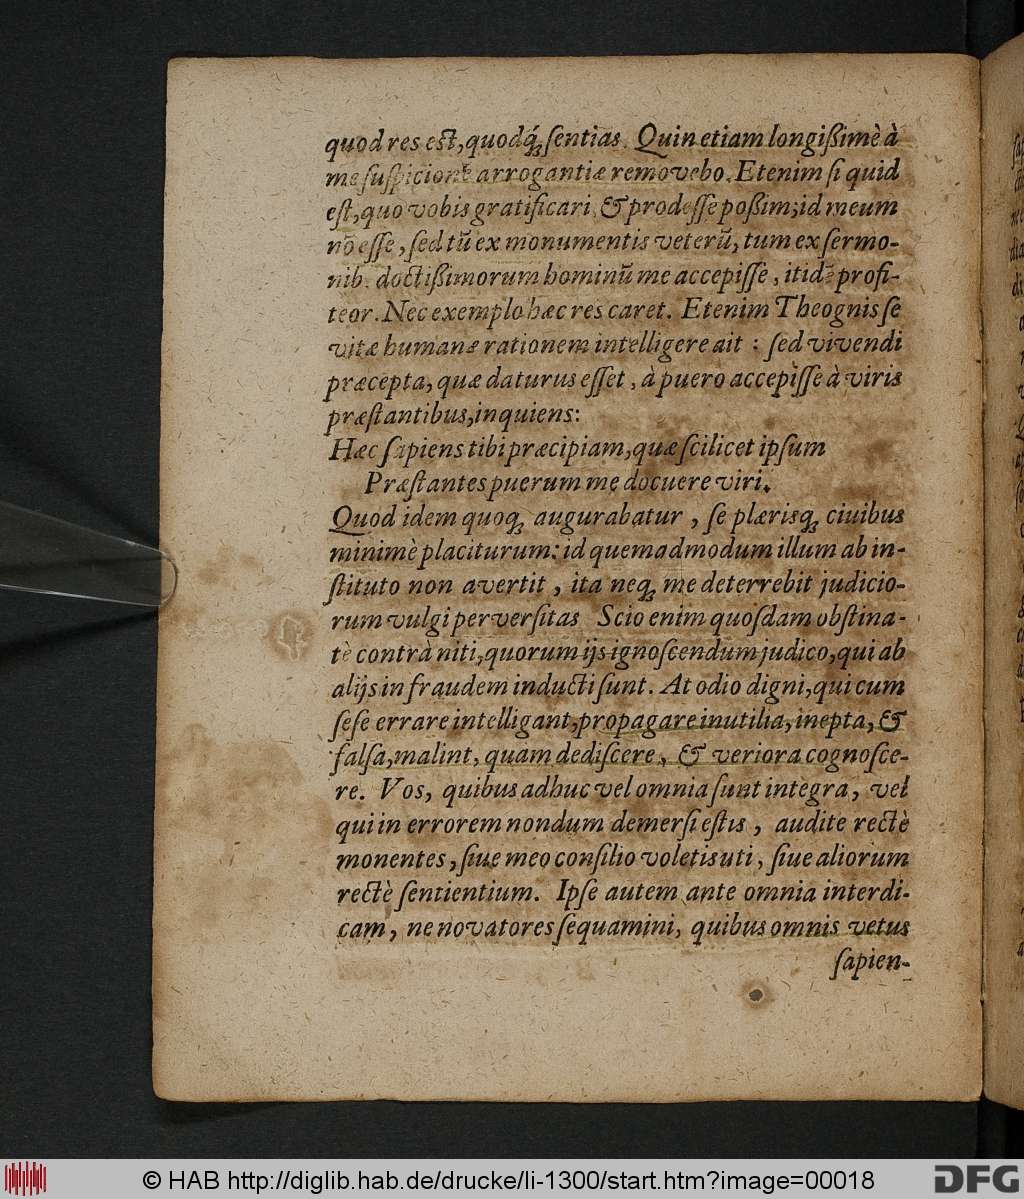 quod res est, quodq́ꝫ sentias. Quin etiam longißimè à
me suspicionē arrogantiæ removebo. Etenim si quid
est, quo vobis gratificari & prodeſſe poßim; id meum
nō eſſe, ſed tū ex monumentis veterū, tum ex ſermo-
nib. doctißimorum hominū me accepiſſe, itidē profi-
teor. Nec exemplo hæc res caret. Etenim Theognis ſe
vitæ humanæ rationem intelligere ait : ſed vivendi
præcepta, quæ daturus eſſet, à puero accepiſſe à viris
præſtantibus, inquiens:
Hæc ſapiens tibi præcipiam, quæ ſcilicet ipſum
Præſtantes puerum me docuere viri.
Quod idem quoqꝫ augurabatur, ſe plærisqꝫ ciuibus
minimè placiturum: id quemadmodum illum ab in-
ſtituto non avertit, ita neqꝫ me deterrebit judicio-
rum vulgi perverſitas Scio enim quoſdam obſtina-
tè contrà niti, quorum ijs ignoſcendum judico, qui ab
alijs in fraudem inducti ſunt. At odio digni, qui cum
ſeſe errare intelligant, propagare inutilia, inepta, &
falſa, malint, quam dediſcere, & veriora cognoſce-
re. Vos, quibus adhuc vel omnia ſunt integra, vel
qui in errorem nondum demerſi eſtis, audite rectè
monentes, ſiue meo conſilio voletis uti, ſiue aliorum
rectè ſentientium. Ipſe autem ante omnia interdi-
cam, ne novatores ſequamini, quibus omnis vetus
ſapien-
© HAB http://diglib.hab.de/drucke/li-1300/start.htm?image=00018
DFG